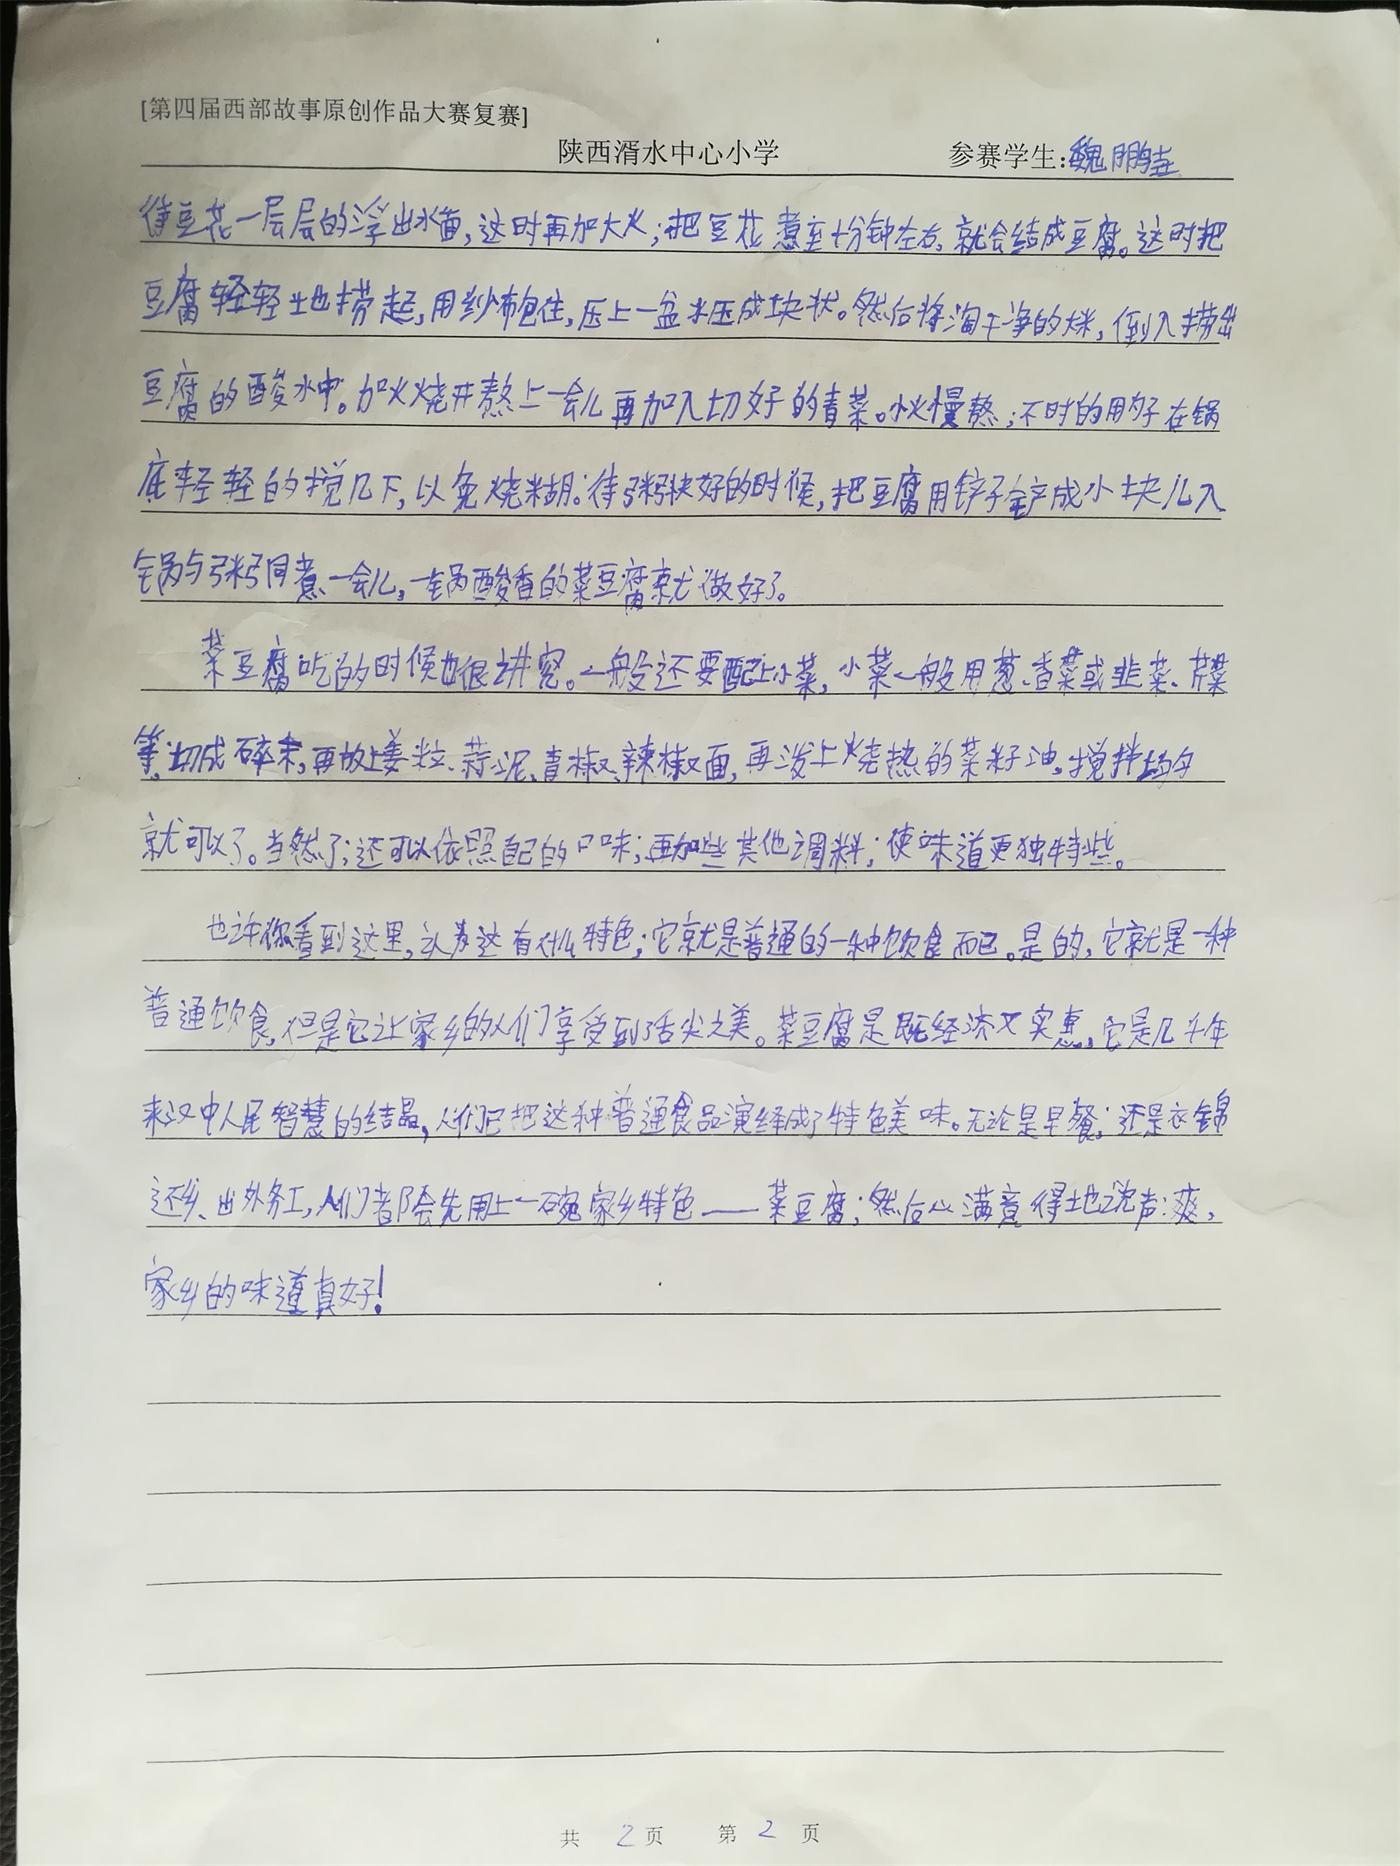 [第四届西部故事原创作品大赛复赛]
陕西湑水中心小学 参赛学生:魏鹏垚
待豆花一层层的浮出水面,这时再加大火;把豆花煮至十分钟左右,就会结成豆腐。这时把
豆腐轻轻地捞起,用纱布包住,压上一盆水压成块状。然后将淘干净的大米,倒入捞出
豆腐的酸水中。加火烧开熬上一会儿再加入切好的青菜。小火慢熬;不时的用勺子在锅
底轻轻的搅几下,以免烧糊。待粥快好的时候,把豆腐用铲子铲成小块儿入
锅与粥同煮一会儿,一锅酸香的菜豆腐就做好了。
菜豆腐吃的时候也很讲究。一般还要配上小菜,小菜一般用葱、香菜或韭菜、芹菜
等,切成碎末,再放上姜粒、蒜泥、青椒、辣椒面,再泼上烧热的菜籽油。搅拌均匀
就可以了。当然了;还可以依照自己的口味;再加些其他调料;使味道更独特些。
也许你看到这里,认为这有什么特色;它就是普通的一种饮食而已。是的,它就是一种
普通饮食,但是它让家乡的人们享受到了舌尖之美。菜豆腐是既经济又实惠,它是几千年
来汉中人民智慧的结晶,人们已把这种普通食品演绎成了特色美味。无论是早餐;还是衣锦
还乡、出外务工,人们都会先用上一碗家乡特色——菜豆腐;然后心满意得地说声:爽,
家乡的味道真好!
共 2 页 第 2 页